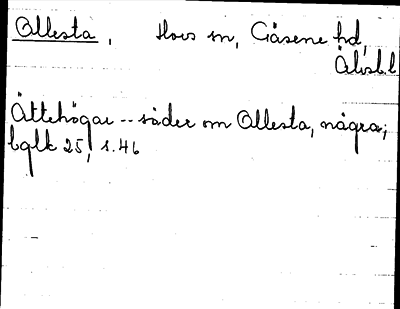 Ollesta, Hovs sn, Gäsene hd,
Älvsb.l
Ättehögar -- söder om Ollesta, några;
bglk 25, s.46